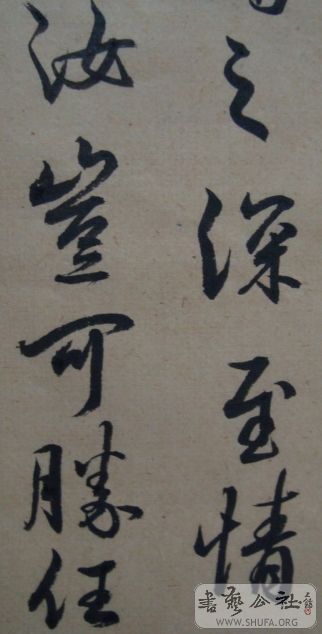 之深至情
汝豈可勝任
書藝公社
WWW.SHUFA.ORG